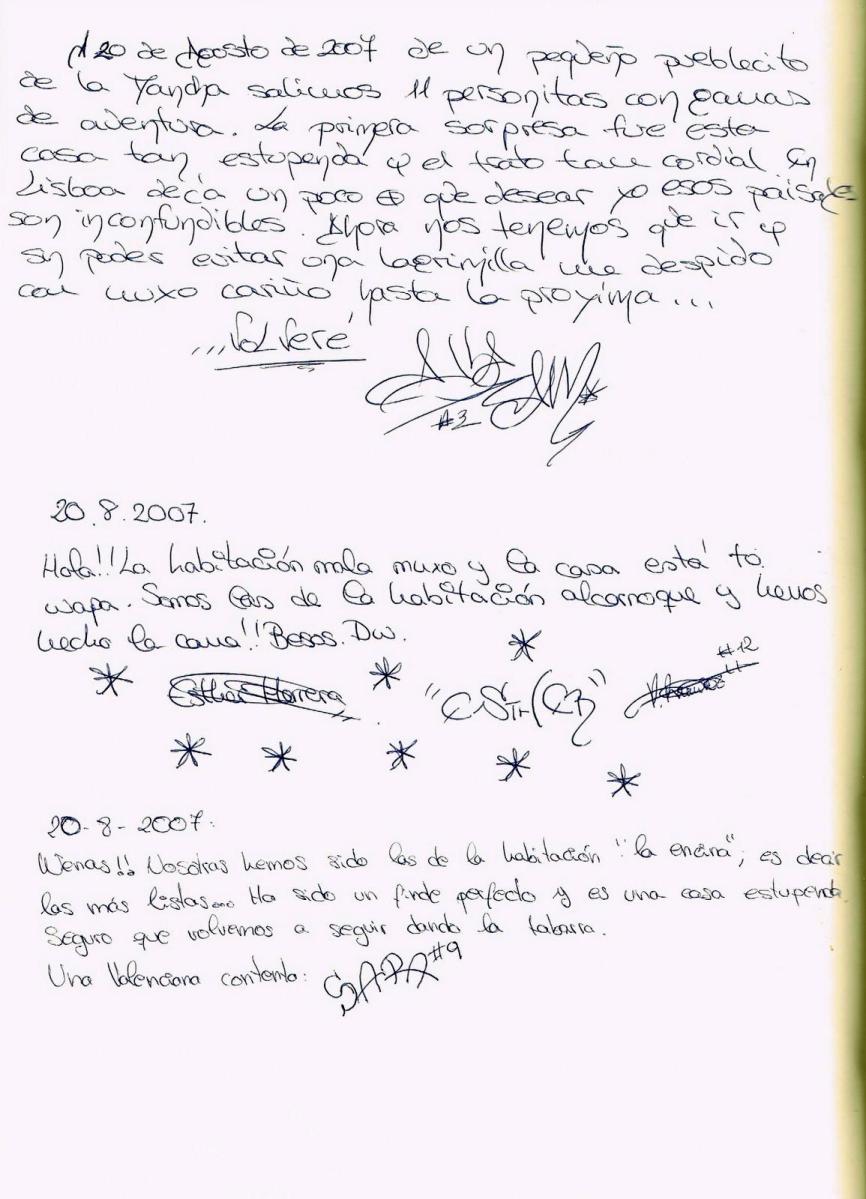 A 20 de Agosto de 2007 de un pequeño pueblecito
de la Mancha salimos 11 personitas con ganas
de aventura. La primera sorpresa fue esta
casa tan estupenda y el trato tan cordial. En
Lisboa deja un poco + que desear xo esos paisajes
son inconfundibles. Ahora nos tenemos que ir y
sin poder evitar una lagrimilla me despido
con muxo cariño hasta la proxima...
...Volveré
#3
20.8.2007.
Hola!! La habitación mola muxo y la casa está to
wapa. Somos las de la habitación alcornoque y hemos
hecho la cama!! Besos. Dw.
* * *
Esther Herrera "CSTH(CR)" #12
* * * * *
20-8-2007:
Wenas!! Nosotras hemos sido las de la habitación "la encina", es decir
las más listas... Ha sido un finde perfecto y es una casa estupenda.
Seguro que volvemos a seguir dando la tabarra.
Una Valenciana contenta: SARA #9